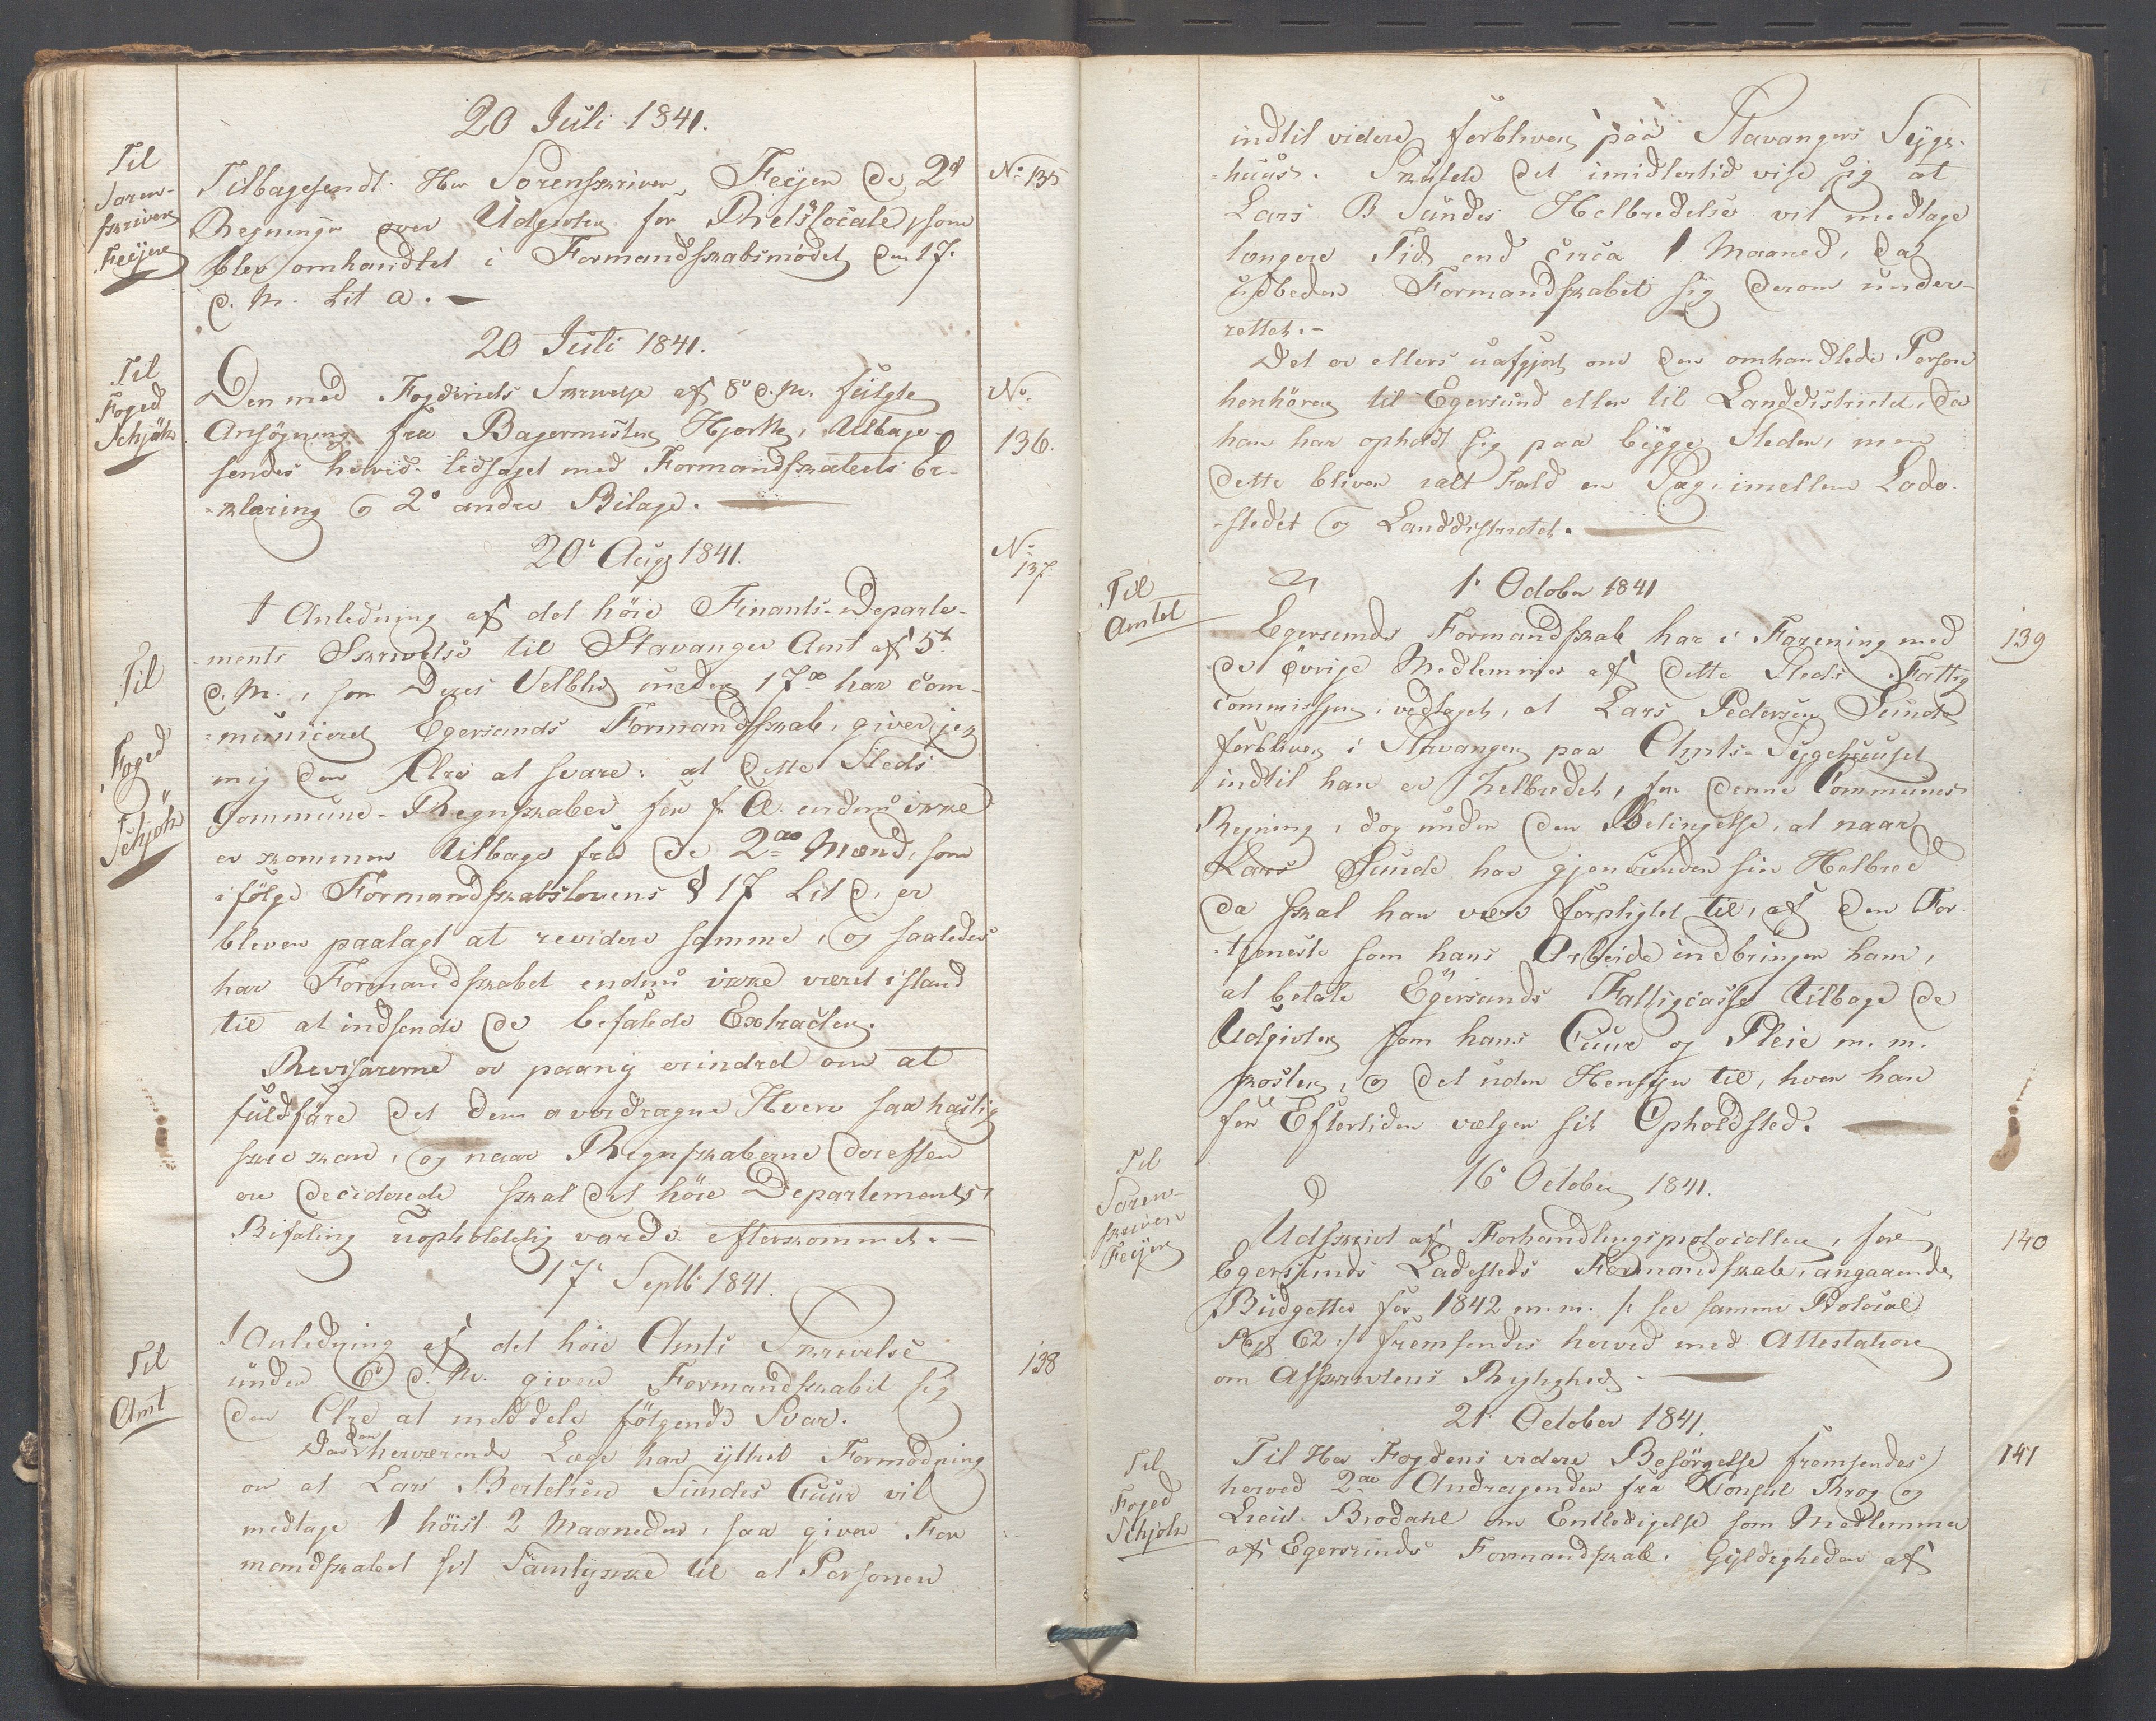 20 Juli 1841.
Til
Soren-
skriver
Feÿer
Tilbagesendt Her Sorenskriver Feÿer de 2de
Regninger over Udgivter for Thetslocale, som
blev omhandlet i Formandskabsmødet den 17.
d. M. Lit a.
No 135
20 Juli 1841.
Til
Foged
Schjøtz
Den med Fogderiets Skrivelse af 8de d. M. fulgte
Ansøgning fra Bagermester Hjorth, tilbage-
sendes herved ledsaget med Formandskabets Er-
-klæring og 2de andre Bilage.
No
136.
20de Aug 1841.
No
137.
Til
Foged
Schjøtz
I Anledning af det høie Finants-Departe-
ments Skrivelse til Stavanger Amt af 5te
d. M., som Deres Velbhd under 17de har com-
municeret Egersunds Formandskab, giver jeg
mig den Ære at svare: at dette Steds
Commune-Regnskaber for f. A. endnu ikke
er kommen tilbage fra de 2de Mænd, som
ifølge Formandskabslovens § 17 Lit d. er
bleven paalagt at revidere samme, og saaledes
har Formandskabet endnu ikke været istand
til at indsende de befalede Extracter.
Revisorerne er paany erindret om at
fuldføre det dem overdragne Hverv saa hastig
skee kan, og naar Regnskaberne derefter
ere deciderede skal det høie Departements
Befaling uopholdelig vorde efterkommet.
17de Septb 1841.
Til
Amt
I Anledning af det høie Amts Skrivelse
under 6te d. M. giver Formandskabet sig
den Ære at meddele følgende Svar.
138
Da den herværende Læge har yttret Formodning
om at Lars Bertelsen Sundes Cuur vil
medtage 1 høist 2 Maaneder, saa giver For
mandskabet sit Samtykke til at Personen
indtil videre forbliver paa Stavangers Syge-
-huus. Skulde det imidlertid vise sig at
Lars B Sundes Helbredelse vil medtage
længere Tid end circa 1 Maaned, da
udbeder Formandskabet sig derom under-
rettet.
Det er ellers uafgjort om den omhandlede Person
henhører til Egersund eller til Landdistrictet, da
han har opholdt sig paa begge Steder, men
dette bliver ialt Fald en Sag imellem Lade-
-stedet og Landdistrictet.
1. October 1841
Til
Amtet
139
Egersunds Formandskab har i Forening med
de øvrige Medlemmer af dette Steds Fattig
commission, vedtaget, at Lars Pedersen Sunde
forbliver i Stavanger paa Amts-Sygehuuset
indtil han er helbredet, for denne Communes
Regning, dog under den Betingelse, at naar
Lars Sunde har gjenvunden sin Helbred
da skal han være forpligtet til, af den For-
-tjeneste som hans Arbeide indbringer ham,
at betale Egersunds Fattigcasse tilbage de
Udgivter som hans Cuur og Pleie m. m.
koster, og det uden Hensyn til, hvor han
for Eftertiden vælger sit Opholdsted.
16de October 1841.
Til
Soren-
skriver
Feÿer
140
Udskrivt af Forhandlingsprotocollen, for
Egersunds Ladesteds Formandskab, angaaende
Budgettet for 1842 m. m. /: see samme Protocol
Pag 62 :/ fremsendes herved med Attestation
om Afskrivtens Rigtighed.
21. October 1841.
Til
Foged
Schjøtz
141
Til Her Fogdens videre Besørgelse fremsendes
herved 2de Andragender fra Consul Krog og
Lieut. Brodahl om Entledigelse som Medlemmer
af Egersunds Formandskab. Gyldigheden af